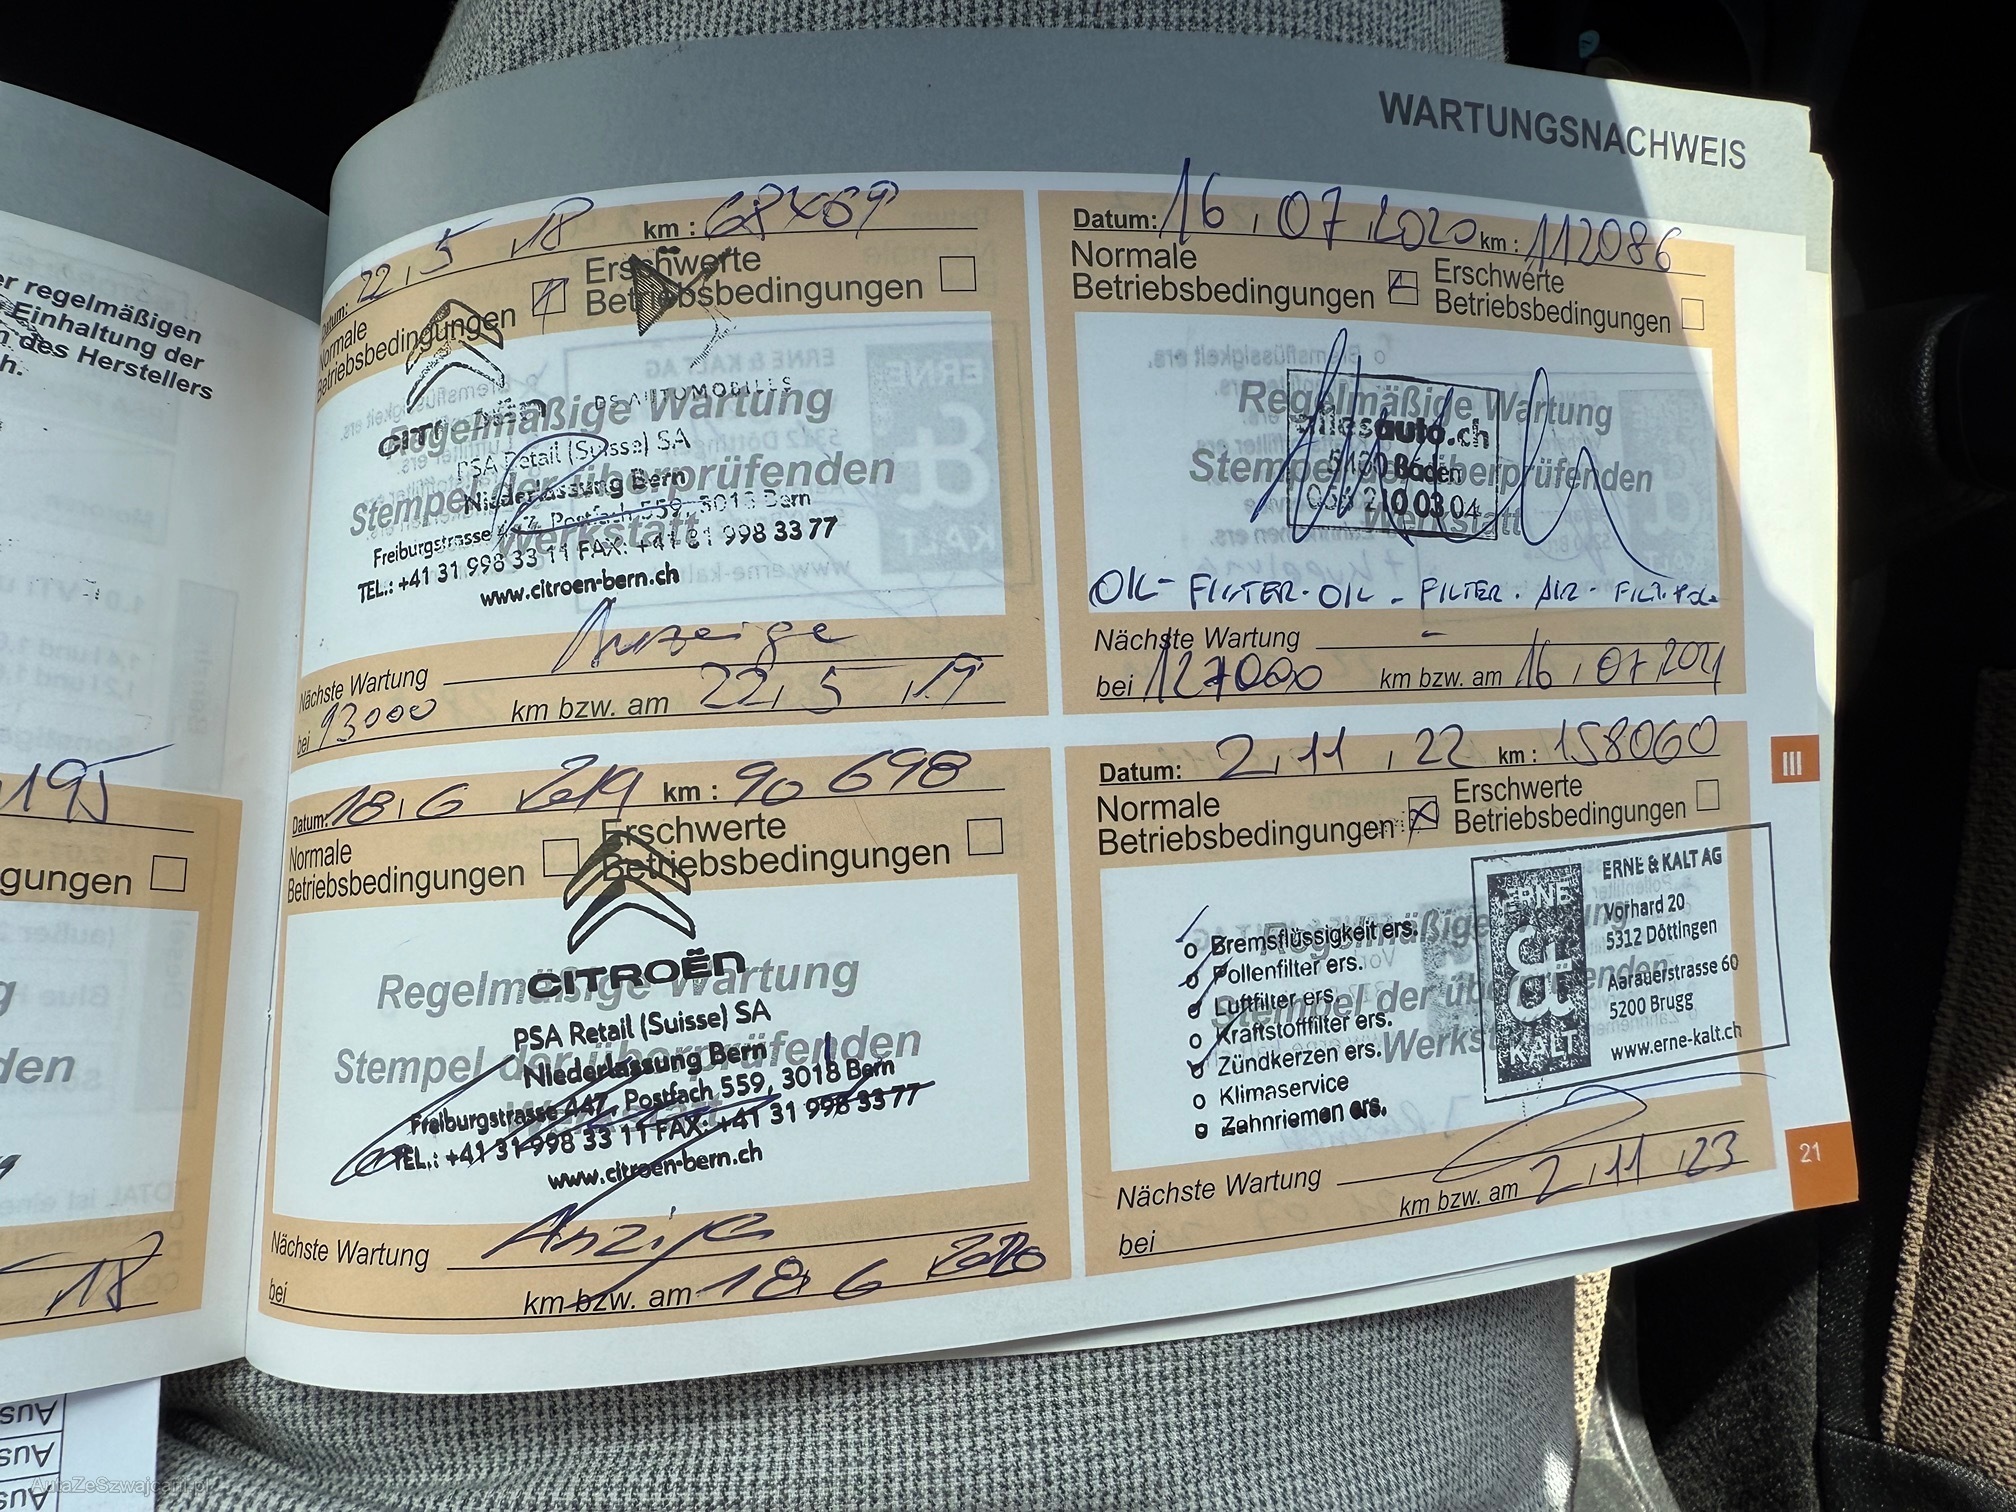 WARTUNGSNACHWEIS
er regelmäßigen
Einhaltung der
des Herstellers
h.
195
gungen
den
18
Datum: 22.5.18 km :
Normale
Betriebsbedingungen
Erschwerte
Betriebsbedingungen
Regelmäßige Wartung
Stempel der überprüfenden
Werkstatt
DS AUTOMOBILES
PSA Retail (Suisse) SA
Niederlassung Bern
Freiburgstrasse 447, Postfach 559, 3018 Bern
TEL.: +41 31 998 33 11 FAX: +41 31 998 33 77
www.citroen-bern.ch
Nächste Wartung Anzeige
bei 93000 km bzw. am 22.5.19
Datum: 18.6 2019 km : 90 698
Normale
Betriebsbedingungen
Erschwerte
Betriebsbedingungen
Regelmäßige Wartung
Stempel der überprüfenden
CITROËN
PSA Retail (Suisse) SA
Niederlassung Bern
Freiburgstrasse 447, Postfach 559, 3018 Bern
TEL.: +41 31 998 33 11 FAX: +41 31 998 33 77
www.citroen-bern.ch
Nächste Wartung
bei km bzw. am 18.6 2020
Datum: 16.07.2020 km : 112086
Normale
Betriebsbedingungen
Erschwerte
Betriebsbedingungen
Regelmäßige Wartung
Stempel der überprüfenden
Werkstatt
auto.ch
Baden
210 03 04
OIL - FILTER. OIL - FILTER. AIR -
Nächste Wartung -
bei 127000 km bzw. am 16.07.2021
Datum: 2.11.22 km : 158060
Normale
Betriebsbedingungen
Erschwerte
Betriebsbedingungen
Regelmäßige Wartung
Stempel der überprüfenden
Werkstatt
Bremsflüssigkeit ers.
Pollenfilter ers.
Luftfilter ers.
Kraftstofffilter ers.
Zündkerzen ers.
Klimaservice
Zahnriemen ers.
ERNE & KALT
ERNE & KALT AG
Vorhard 20
5312 Döttingen
Aarauerstrasse 60
5200 Brugg
www.erne-kalt.ch
Nächste Wartung
bei km bzw. am 2.11.23
III
21
AutaZeSzwajcarii.pl